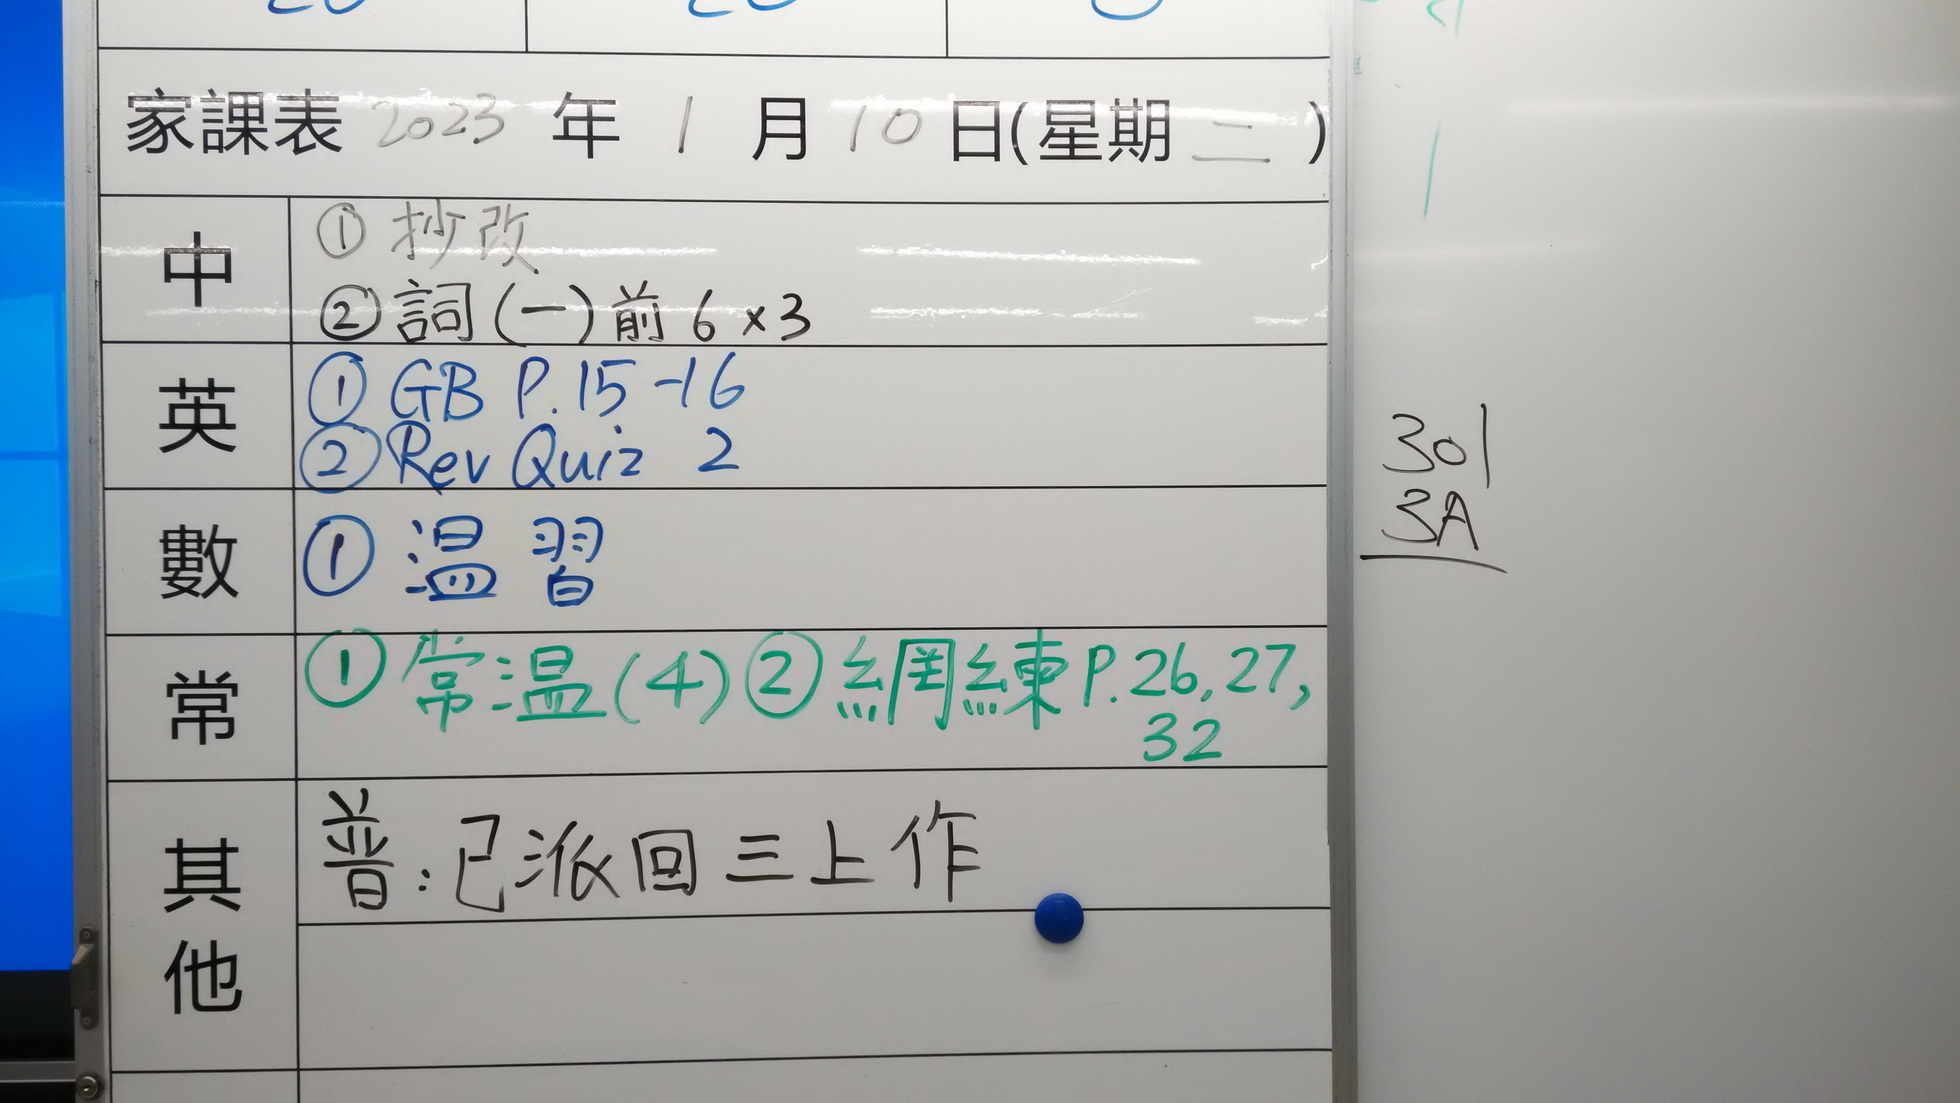 家課表 2023 年 1 月 10 日(星期 二 )
中
① 抄改
② 詞(一)前 6 x 3
英
① GB P.15-16
② Rev Quiz 2
數
① 温習
常
① 常温(4) ② 網練 P.26, 27,
32
其他
普:已派回三上作
301
3A